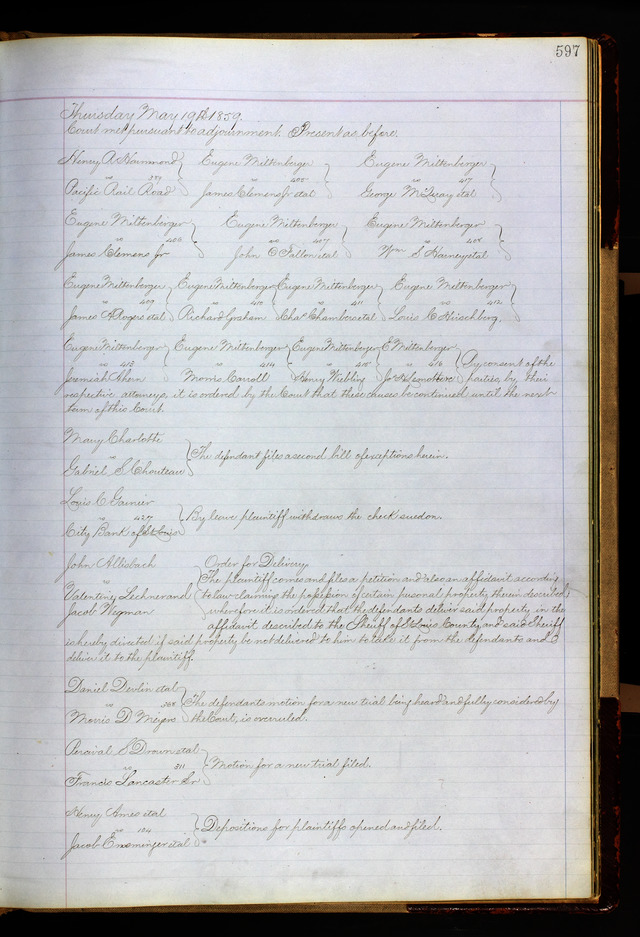 597
Thursday May 19th 1859.
Court met pursuant to adjournment. Present as before.
Henry A Hammond } Eugene Miltenberger } Eugene Miltenberger }
vs 399 vs 405 vs
Pacific Rail Road James Clemens Jr etal George McQuay etal
Eugene Miltenberger } Eugene Miltenberger } Eugene Miltenberger }
vs 406 vs 407 vs 408
James Clemens Jr John O Fallon etal Wm S Harney etal
Eugene Miltenberger } Eugene Miltenberger } Eugene Miltenberger } Eugene Miltenberger }
vs 409 vs 410 vs 411 vs 412
James A Rogers etal Richard Graham Chas Chambers etal Louis C Hirschberg
Eugene Miltenberger } Eugene Miltenberger } Eugene Miltenberger } E Miltenberger }
vs 413 vs 414 vs 415 vs 416 By consent of the
Jeremiah Ahern Morris Carroll Henry Wiebling parties, by their
respective attorneys, it is ordered by the Court that these causes be continued until the next
term of this Court.
Mary Charlotte
vs } The defendant files a second bill of exceptions herein.
Gabriel S Chouteau
Louis C Garnier
vs 427 } By leave plaintiff withdraws the check sued on.
City Bank of St Louis
John Allisbach Order for Delivery.
vs } The plaintiff comes and files a petition and also an affidavit according
Valentine Lechner and to law claiming the possession of certain personal property therein described
Jacob Wegman wherefore it is ordered that the defendants deliver said property in the
affidavit described to the Sheriff of St Louis County, and said Sheriff
is hereby directed if said property be not delivered to him to take it from the defendants and
deliver it to the plaintiff.
Daniel Devlin etal
vs 368 } The defendants motion for a new trial being heard and fully considered by
Morris D Meyers the Court, is overruled.
Percival S Drown etal
vs 311 } Motion for a new trial filed.
Francis Lancaster Sr
Henry Ames etal
vs 104 } Depositions for plaintiffs opened and filed.
Jacob Ensminger etal